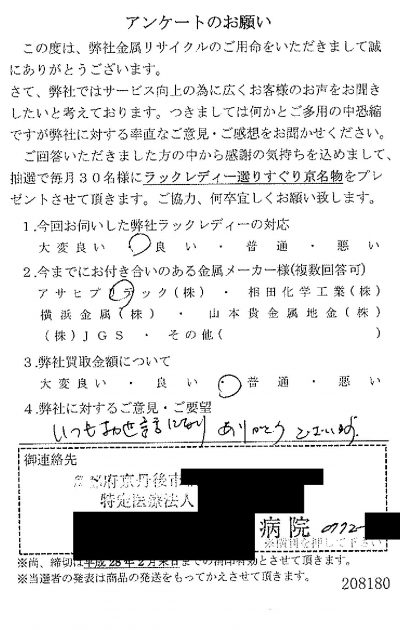 アンケートのお願い
この度は、弊社金属リサイクルのご用命をいただきまして誠
にありがとうございます。
さて、弊社ではサービス向上の為に広くお客様のお声をお聞き
したいと考えております。つきましては何かとご多用の中恐縮
ですが弊社に対する率直なご意見・ご感想をお聞かせください。
ご回答いただきました方の中から感謝の気持ちを込めまして、
抽選で毎月30名様にラックレディー選りすぐり京名物をプレ
ゼントさせて頂きます。ご協力、何卒宜しくお願い致します。
1.今回お伺いした弊社ラックレディーの対応
大変良い ・ 良い ・ 普通 ・ 悪い
2.今までにお付き合いのある金属メーカー様(複数回答可)
アサヒプリテック(株) ・ 相田化学工業(株)
横浜金属(株) ・ 山本貴金属地金(株)
(株)JGS ・ その他( )
3.弊社買取金額について
大変良い ・ 良い ・ 普通 ・ 悪い
4.弊社に対するご意見・ご要望
いつもお世話になり ありがとうございます。
御連絡先
府京丹後市
特定医療法人
病院 0772-
※尚、締切は平成28年2月末日までの消印有効とさせて頂きます。
※当選者の発表は商品の発送をもってかえさせて頂きます。
208180